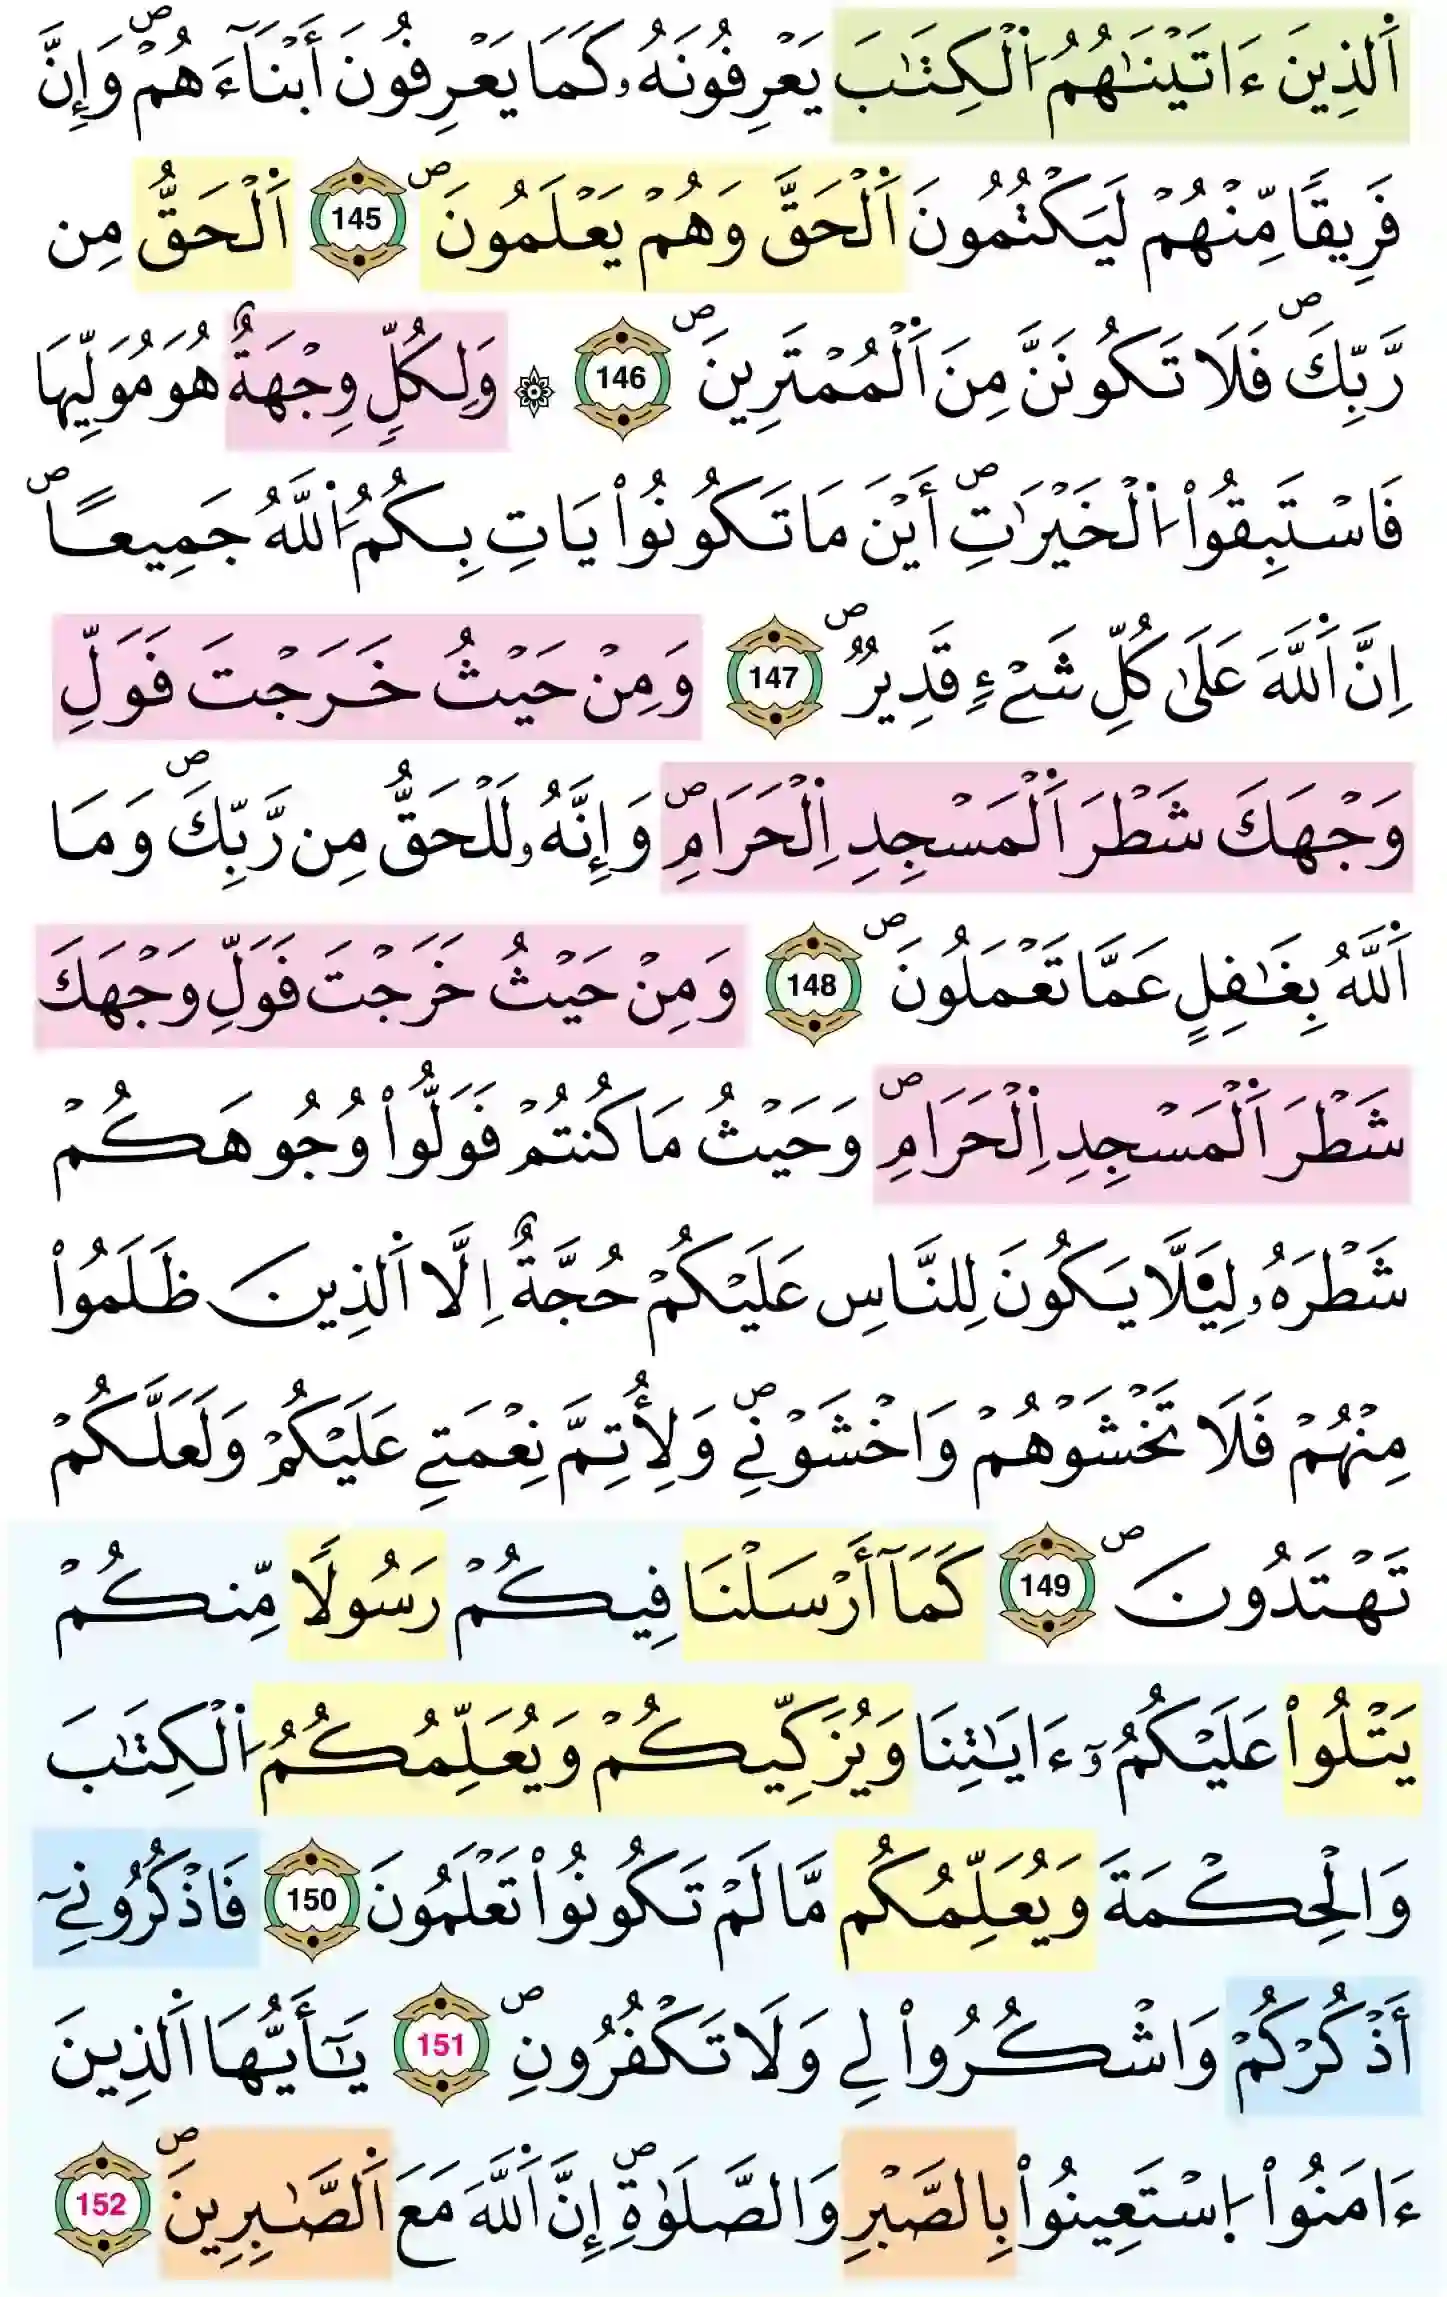 اَ۬لذِينَ ءَاتَيْنَٰهُمُ اُ۬لْكِتَٰبَ يَعْرِفُونَهُۥ كَمَا يَعْرِفُونَ أَبْنَآءَهُمْۖ وَإِنَّ
فَرِيقاٗ مِّنْهُمْ لَيَكْتُمُونَ اَ۬لْحَقَّ وَهُمْ يَعْلَمُونَۖ 145 اَ۬لْحَقُّ مِن
رَّبِّكَۖ فَلَا تَكُونَنَّ مِنَ اَ۬لْمُمْتَرِينَۖ 146 ۞ وَلِكُلّٖ وِجْهَةٌ هُوَ مُوَلِّيهَا
فَاسْتَبِقُواْ اُ۬لْخَيْرَٰتِۖ أَيْنَ مَا تَكُونُواْ يَاتِ بِكُمُ اُ۬للَّهُ جَمِيعاًۖ
اِنَّ اَ۬للَّهَ عَلَىٰ كُلِّ شَےْءٖ قَدِيرٞۖ 147 وَمِنْ حَيْثُ خَرَجْتَ فَوَلِّ
وَجْهَكَ شَطْرَ اَ۬لْمَسْجِدِ اِ۬لْحَرَامِۖ وَإِنَّهُۥ لَلْحَقُّ مِن رَّبِّكَۖ وَمَا
اَ۬للَّهُ بِغَٰفِلٍ عَمَّا تَعْمَلُونَۖ 148 وَمِنْ حَيْثُ خَرَجْتَ فَوَلِّ وَجْهَكَ
شَطْرَ اَ۬لْمَسْجِدِ اِ۬لْحَرَامِۖ وَحَيْثُ مَا كُنتُمْ فَوَلُّواْ وُجُوهَكُمْ
شَطْرَهُۥ لِيَ۬لَّا يَكُونَ لِلنَّاسِ عَلَيْكُمْ حُجَّةٌ اِلَّا اَ۬لذِينَ ظَلَمُواْ
مِنْهُمْ فَلَا تَخْشَوْهُمْ وَاخْشَوْنِےۖ وَلِأُتِمَّ نِعْمَتِے عَلَيْكُمْ وَلَعَلَّكُمْ
تَهْتَدُونَۖ 149 كَمَآ أَرْسَلْنَا فِيكُمْ رَسُولاٗ مِّنكُمْ
يَتْلُواْ عَلَيْكُمُۥٓ ءَايَٰتِنَا وَيُزَكِّيكُمْ وَيُعَلِّمُكُمُ اُ۬لْكِتَٰبَ
وَالْحِكْمَةَ وَيُعَلِّمُكُم مَّا لَمْ تَكُونُواْ تَعْلَمُونَ 150 فَاذْكُرُونِےٓ
أَذْكُرْكُمْ وَاشْكُرُواْ لِے وَلَا تَكْفُرُونِۖ 151 يَٰٓأَيُّهَا اَ۬لذِينَ
ءَامَنُواْ اُ۪سْتَعِينُواْ بِالصَّبْرِ وَالصَّلَوٰةِۖ إِنَّ اَ۬للَّهَ مَعَ اَ۬لصَّٰبِرِينَۖ 152